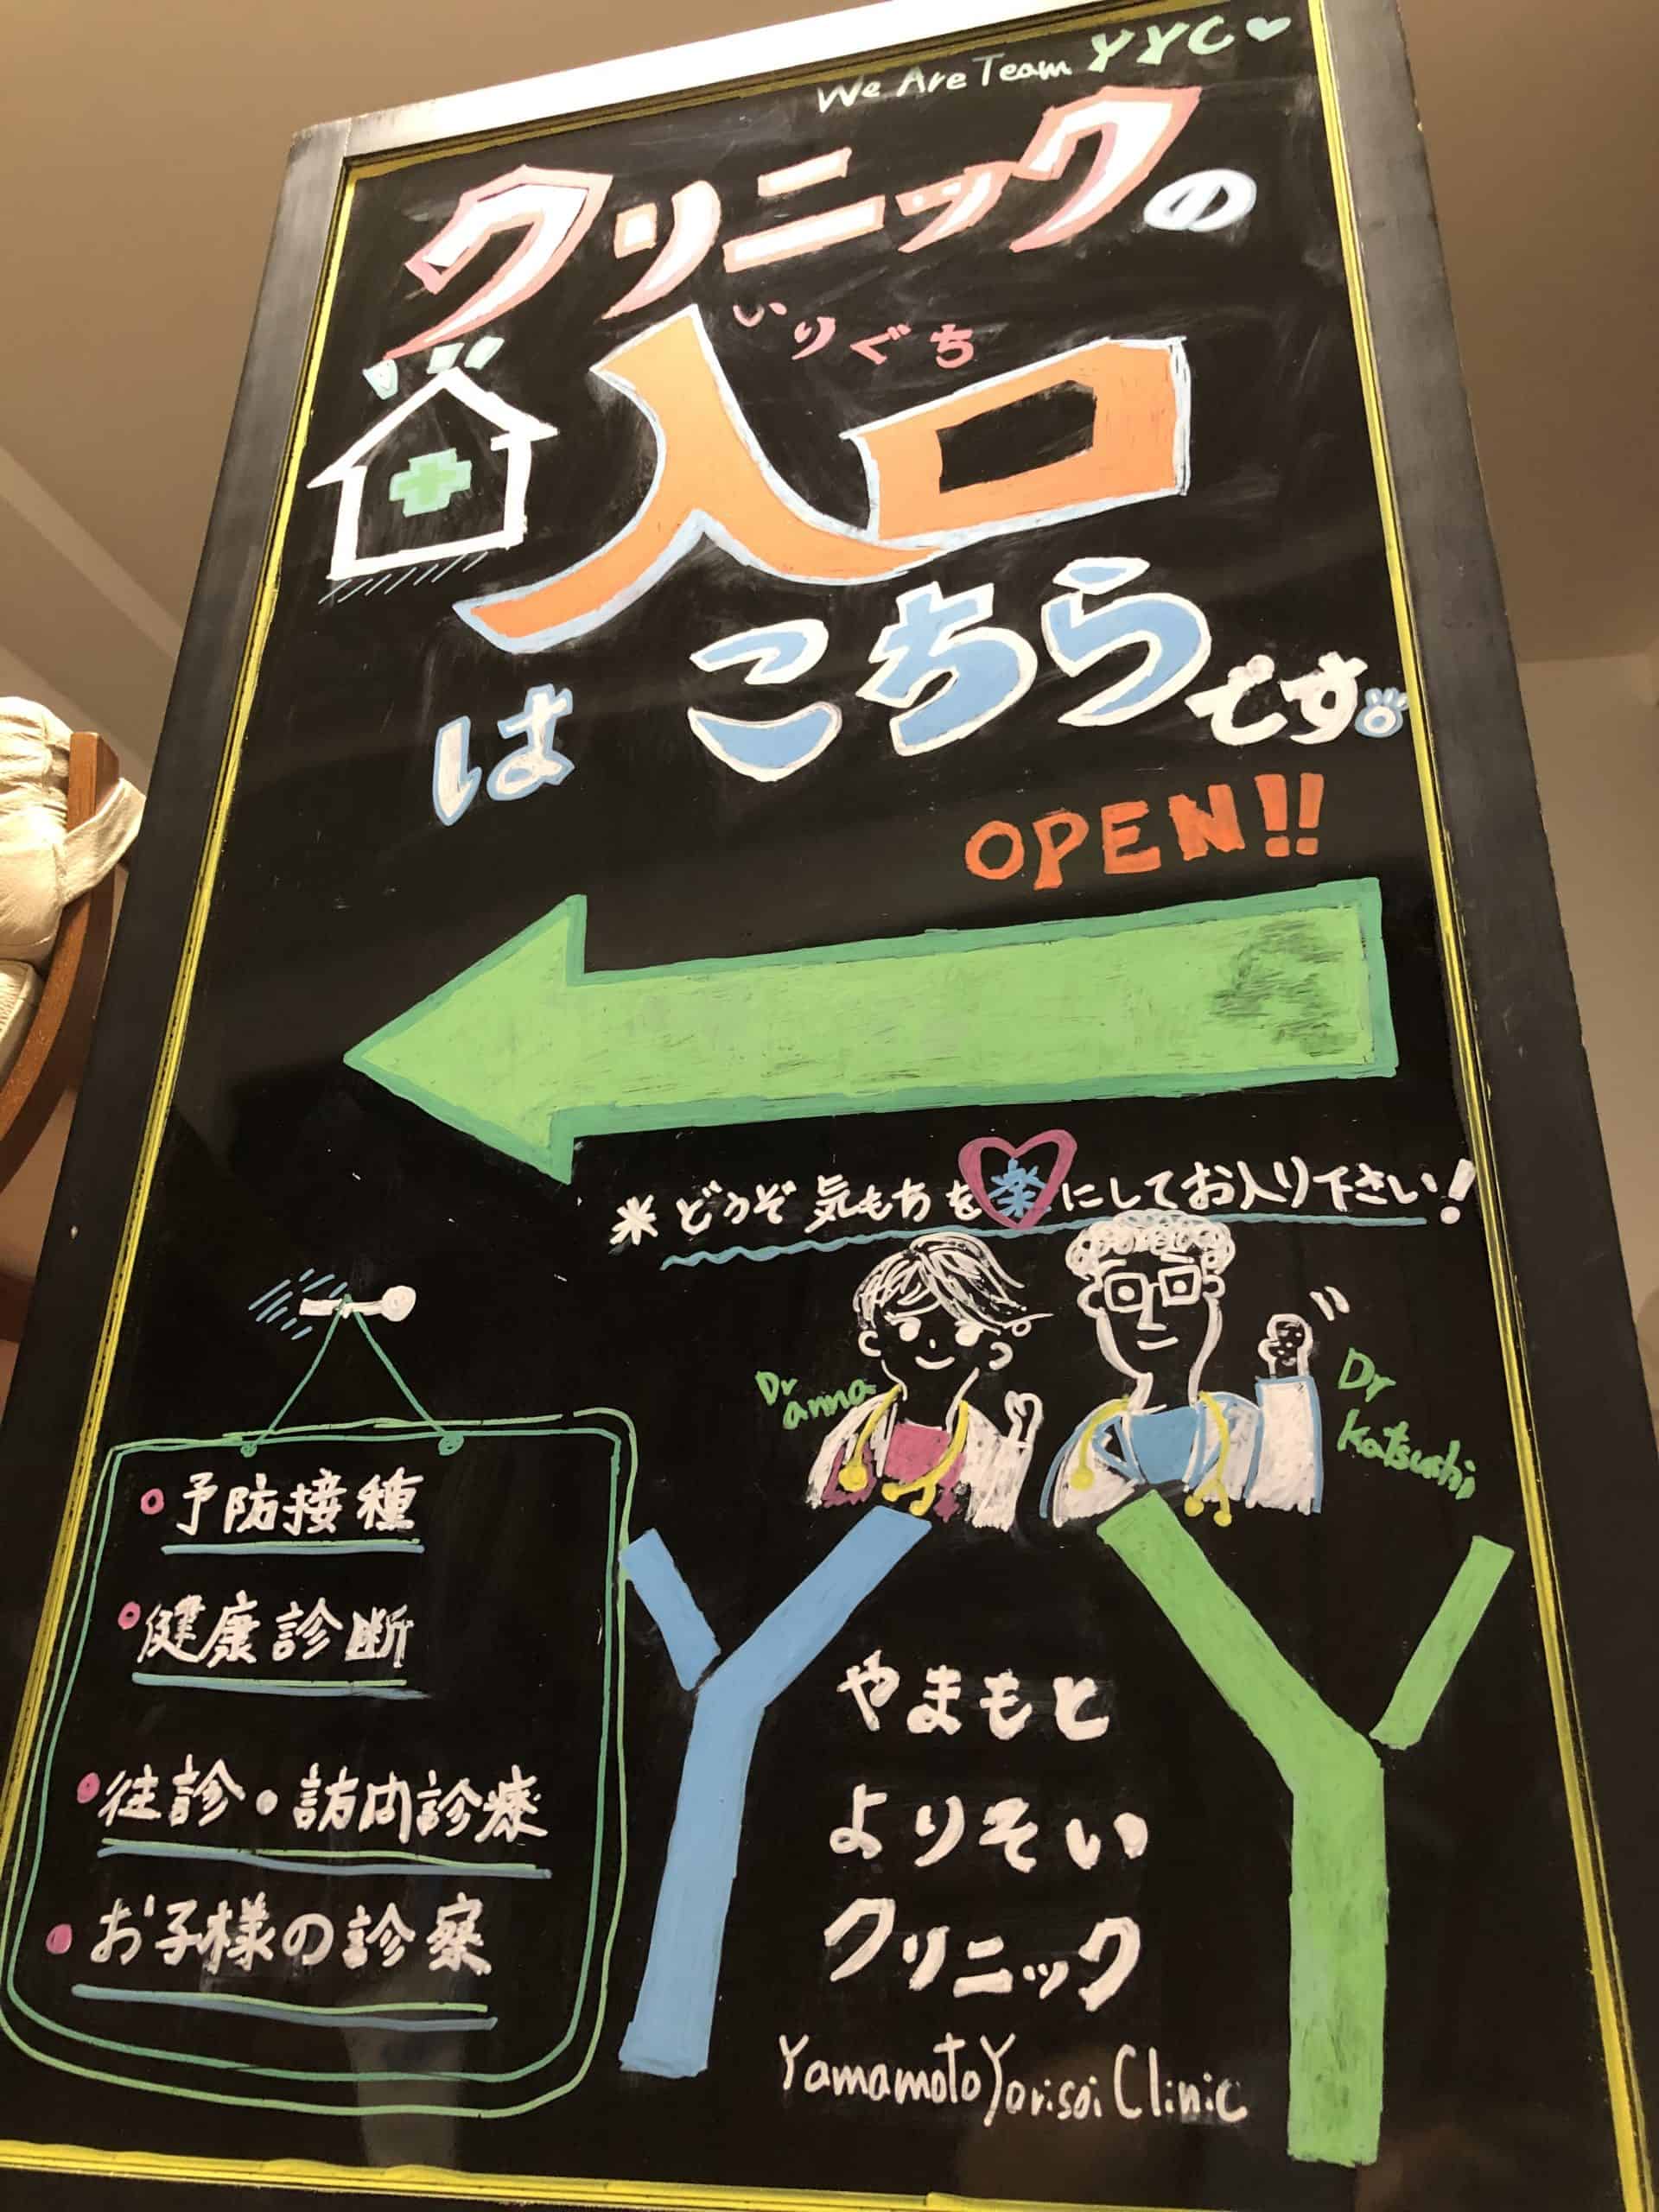 We Are Team YYC♥
クリニックの
いりぐち
入口
はこちらです。
OPEN!!
※どうぞ気もちを楽にしてお入り下さい!
Dr anna
Dr Katsushi
予防接種
健康診断
往診・訪問診療
お子様の診察
YY
やまもと
よりそい
クリニック
Yamamoto Yorisoi Clinic